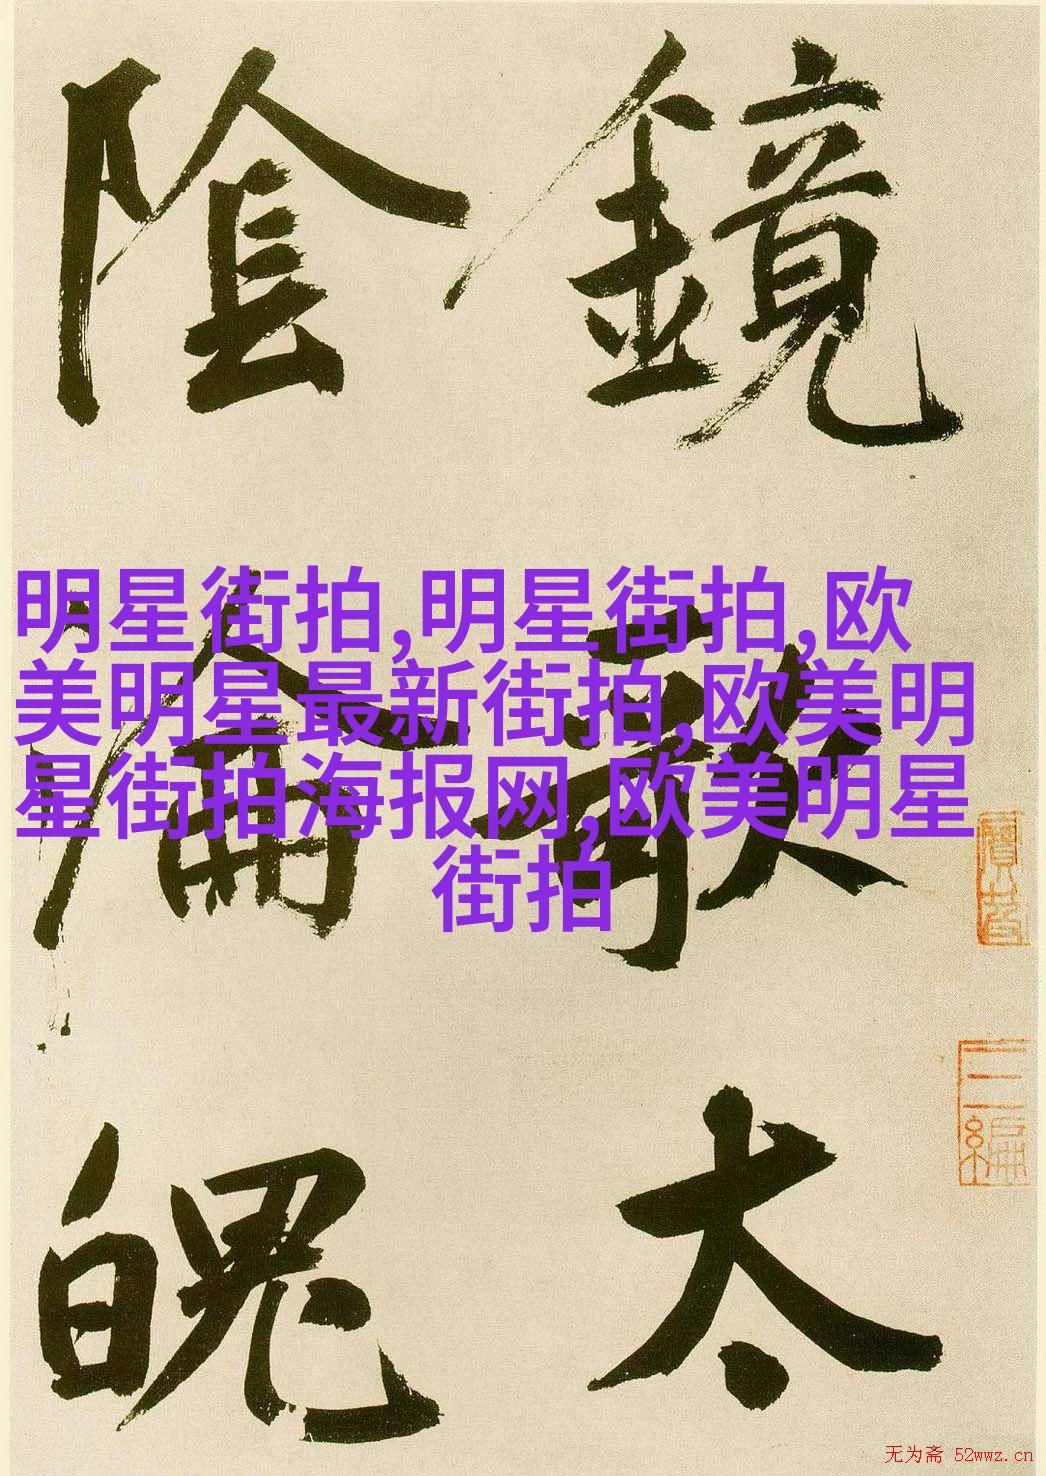 鏡
太
陰
魄
明星街拍,明星街拍,欧
美明星最新街拍,欧美明
星街拍海报网,欧美明星
街拍
无为斋 52wwz.cn